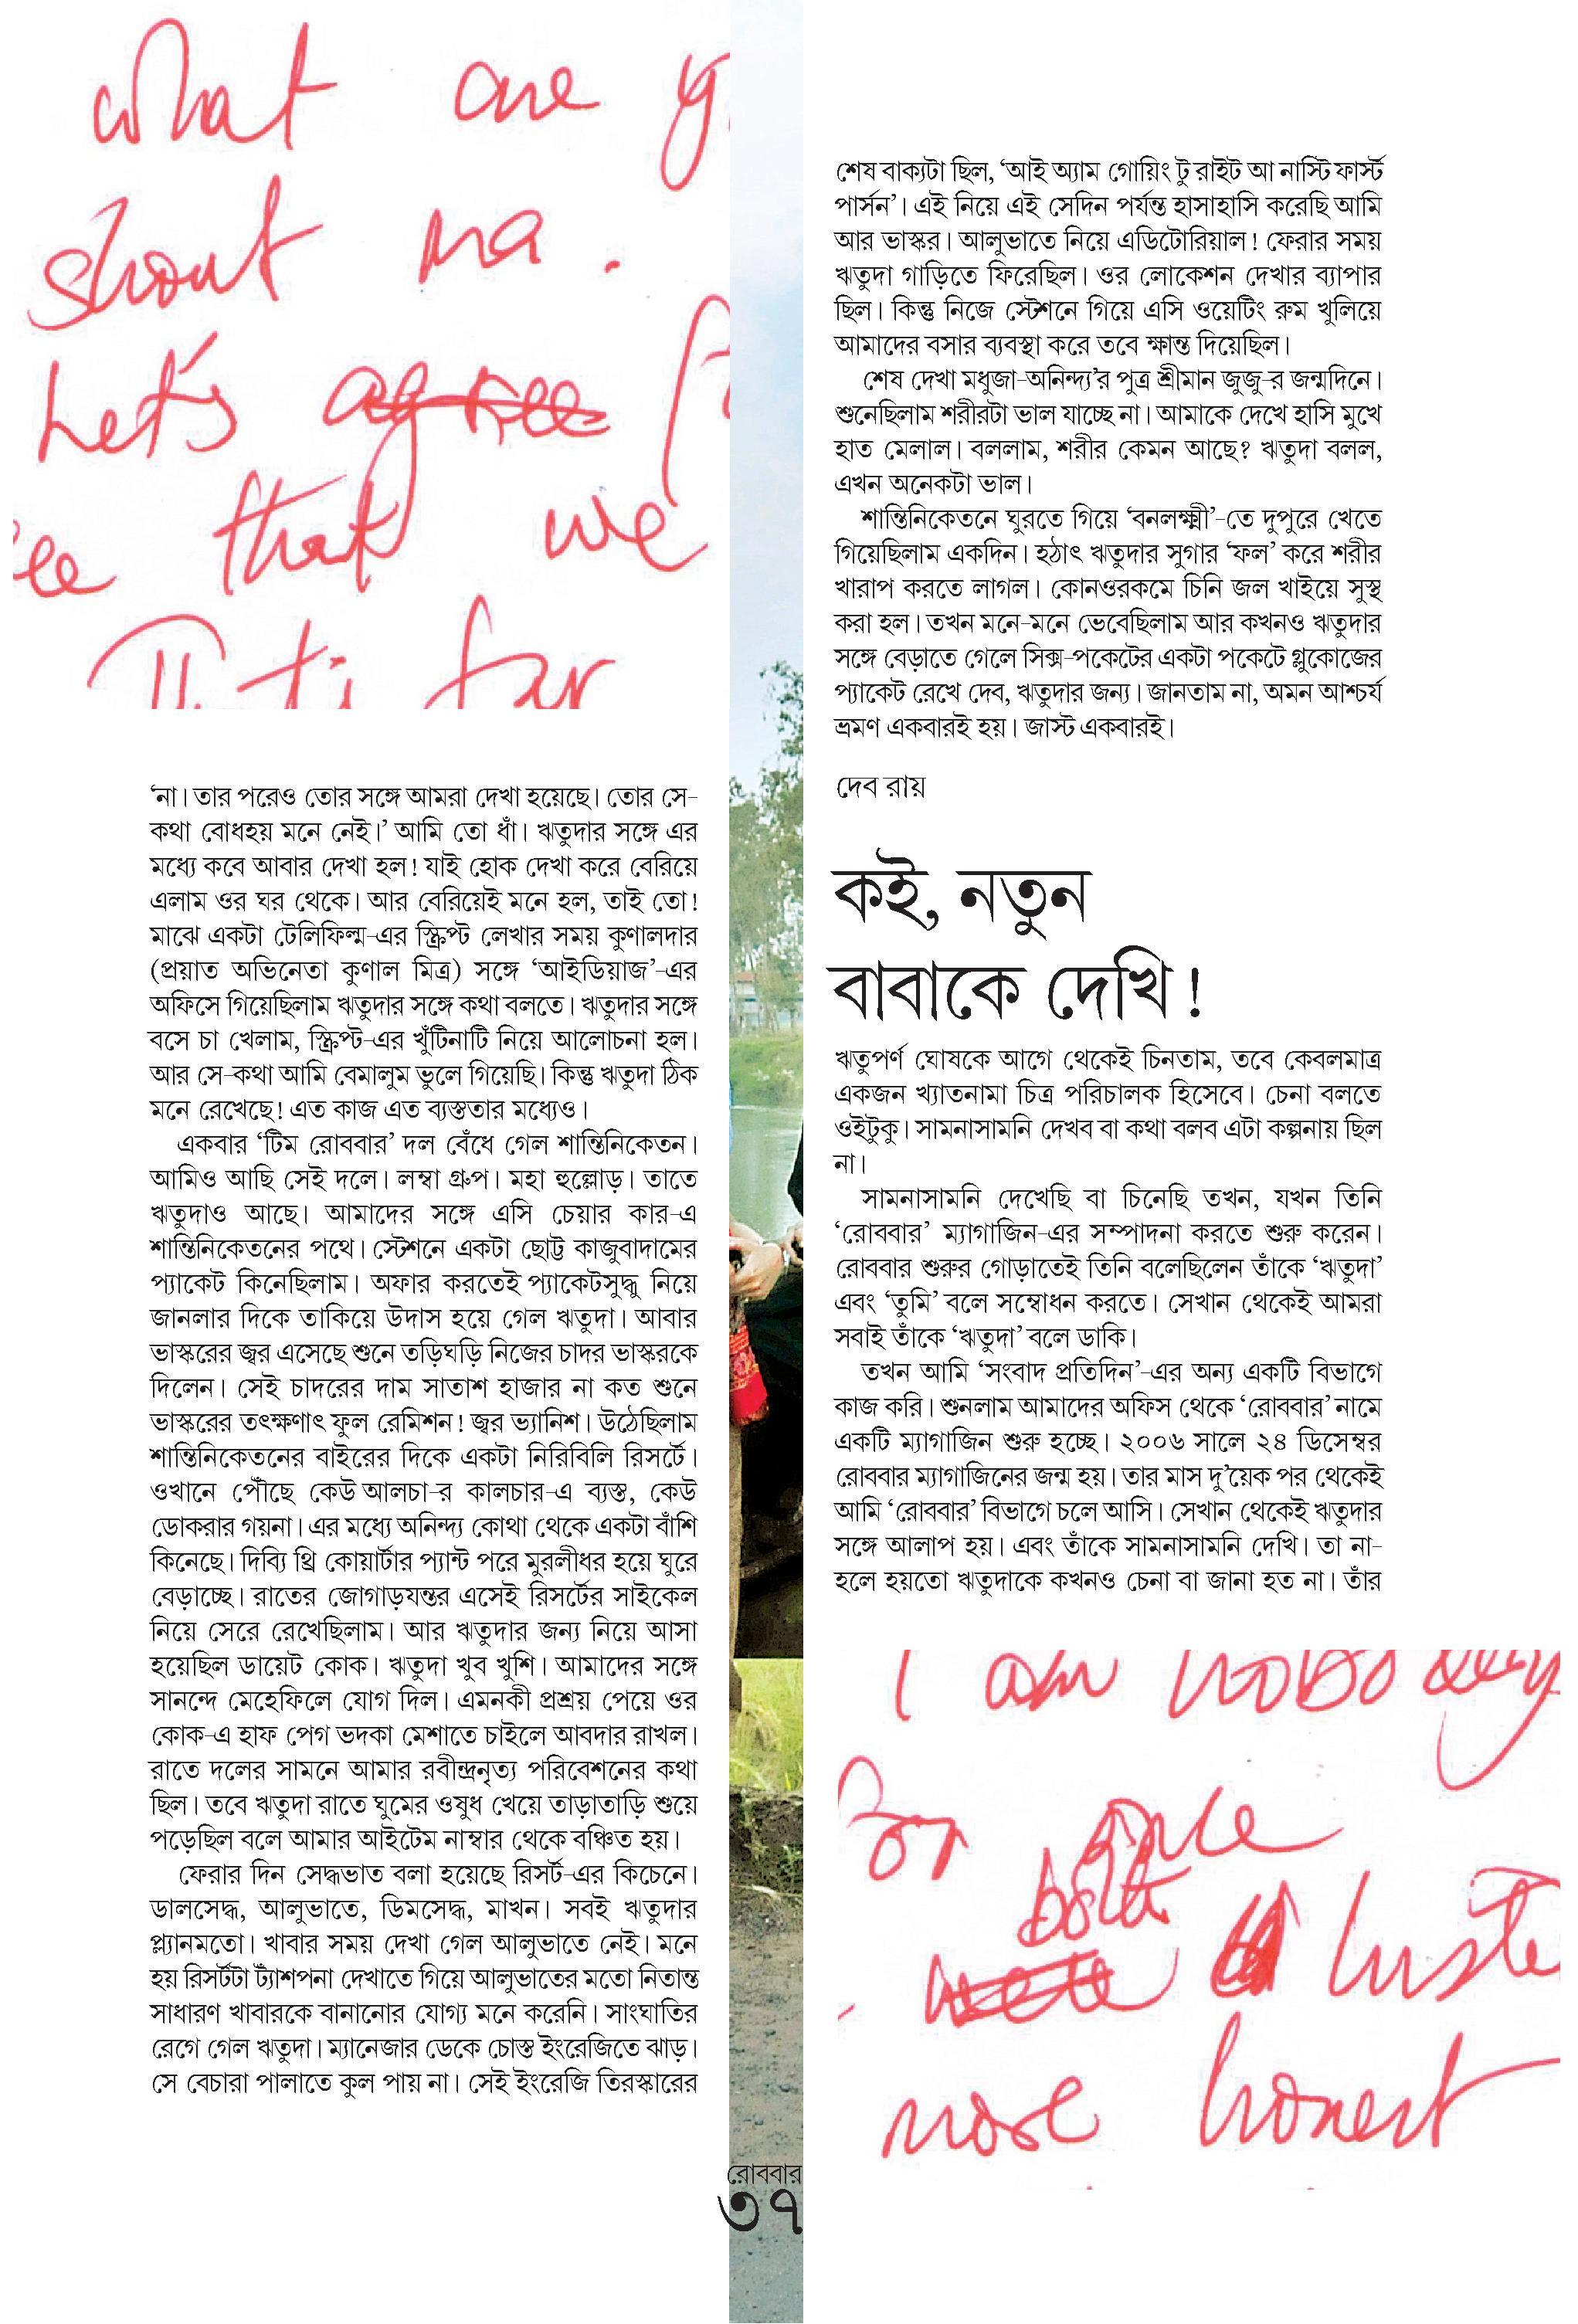 what are
shout ma.
Let's agree
that we
far
‘না। তার পরেও তোর সঙ্গে আমরা দেখা হয়েছে। তোর সে-
কথা বোধহয় মনে নেই।’ আমি তো ধাঁ। ঋতুদার সঙ্গে এর
মধ্যে কবে আবার দেখা হল! যাই হোক দেখা করে বেরিয়ে
এলাম ওর ঘর থেকে। আর বেরিয়েই মনে হল, তাই তো!
মাঝে একটা টেলিফিল্ম-এর স্ক্রিপ্ট লেখার সময় কুণালদার
(প্রয়াত অভিনেতা কুণাল মিত্র) সঙ্গে ‘আইডিয়াজ’-এর
অফিসে গিয়েছিলাম ঋতুদার সঙ্গে কথা বলতে। ঋতুদার সঙ্গে
বসে চা খেলাম, স্ক্রিপ্ট-এর খুঁটিনাটি নিয়ে আলোচনা হল।
আর সে-কথা আমি বেমালুম ভুলে গিয়েছি। কিন্তু ঋতুদা ঠিক
মনে রেখেছে! এত কাজ এত ব্যস্ততার মধ্যেও।
একবার ‘টিম রোববার’ দল বেঁধে গেল শান্তিনিকেতন।
আমিও আছি সেই দলে। লম্বা গ্রুপ। মহা হুল্লোড়। তাতে
ঋতুদাও আছে। আমাদের সঙ্গে এসি চেয়ার কার-এ
শান্তিনিকেতনের পথে। স্টেশনে একটা ছোট্ট কাজুবাদামের
প্যাকেট কিনেছিলাম। অফার করতেই প্যাকেটসুদ্ধু নিয়ে
জানলার দিকে তাকিয়ে উদাস হয়ে গেল ঋতুদা। আবার
ভাস্করের জ্বর এসেছে শুনে তড়িঘড়ি নিজের চাদর ভাস্করকে
দিলেন। সেই চাদরের দাম সাতাশ হাজার না কত শুনে
ভাস্করের তৎক্ষণাৎ ফুল রেমিশন! জ্বর ভ্যানিশ। উঠেছিলাম
শান্তিনিকেতনের বাইরের দিকে একটা নিরিবিলি রিসর্টে।
ওখানে পৌঁছে কেউ আলচা-র কালচার-এ ব্যস্ত, কেউ
ডোকরার গয়না। এর মধ্যে অনিন্দ্য কোথা থেকে একটা বাঁশি
কিনেছে। দিব্যি থ্রি কোয়ার্টার প্যান্ট পরে মুরলীধর হয়ে ঘুরে
বেড়াচ্ছে। রাতের জোগাড়যন্তর এসেই রিসর্টের সাইকেল
নিয়ে সেরে রেখেছিলাম। আর ঋতুদার জন্য নিয়ে আসা
হয়েছিল ডায়েট কোক। ঋতুদা খুব খুশি। আমাদের সঙ্গে
সানন্দে মেহেফিলে যোগ দিল। এমনকী প্রশ্রয় পেয়ে ওর
কোক-এ হাফ পেগ ভদকা মেশাতে চাইলে আবদার রাখল।
রাতে দলের সামনে আমার রবীন্দ্রনৃত্য পরিবেশনের কথা
ছিল। তবে ঋতুদা রাতে ঘুমের ওষুধ খেয়ে তাড়াতাড়ি শুয়ে
পড়েছিল বলে আমার আইটেম নাম্বার থেকে বঞ্চিত হয়।
ফেরার দিন সেদ্ধভাত বলা হয়েছে রিসর্ট-এর কিচেনে।
ডালসেদ্ধ, আলুভাতে, ডিমসেদ্ধ, মাখন। সবই ঋতুদার
প্ল্যানমতো। খাবার সময় দেখা গেল আলুভাতে নেই। মনে
হয় রিসর্টটা ট্যাঁশপনা দেখাতে গিয়ে আলুভাতের মতো নিতান্ত
সাধারণ খাবারকে বানানোর যোগ্য মনে করেনি। সাংঘাতির
রেগে গেল ঋতুদা। ম্যানেজার ডেকে চোস্ত ইংরেজিতে ঝাড়।
সে বেচারা পালাতে কুল পায় না। সেই ইংরেজি তিরস্কারের
শেষ বাক্যটা ছিল, ‘আই অ্যাম গোয়িং টু রাইট আ নাস্টি ফার্স্ট
পার্সন’। এই নিয়ে এই সেদিন পর্যন্ত হাসাহাসি করেছি আমি
আর ভাস্কর। আলুভাতে নিয়ে এডিটোরিয়াল! ফেরার সময়
ঋতুদা গাড়িতে ফিরেছিল। ওর লোকেশন দেখার ব্যাপার
ছিল। কিন্তু নিজে স্টেশনে গিয়ে এসি ওয়েটিং রুম খুলিয়ে
আমাদের বসার ব্যবস্থা করে তবে ক্ষান্ত দিয়েছিল।
শেষ দেখা মধুজা-অনিন্দ্য’র পুত্র শ্রীমান জুজু-র জন্মদিনে।
শুনেছিলাম শরীরটা ভাল যাচ্ছে না। আমাকে দেখে হাসি মুখে
হাত মেলাল। বললাম, শরীর কেমন আছে? ঋতুদা বলল,
এখন অনেকটা ভাল।
শান্তিনিকেতনে ঘুরতে গিয়ে ‘বনলক্ষ্মী’-তে দুপুরে খেতে
গিয়েছিলাম একদিন। হঠাৎ ঋতুদার সুগার ‘ফল’ করে শরীর
খারাপ করতে লাগল। কোনওরকমে চিনি জল খাইয়ে সুস্থ
করা হল। তখন মনে-মনে ভেবেছিলাম আর কখনও ঋতুদার
সঙ্গে বেড়াতে গেলে সিক্স-পকেটের একটা পকেটে গ্লুকোজের
প্যাকেট রেখে দেব, ঋতুদার জন্য। জানতাম না, অমন আশ্চর্য
ভ্রমণ একবারই হয়। জাস্ট একবারই।
দেব রায়
কই, নতুন
বাবাকে দেখি!
ঋতুপর্ণ ঘোষকে আগে থেকেই চিনতাম, তবে কেবলমাত্র
একজন খ্যাতনামা চিত্র পরিচালক হিসেবে। চেনা বলতে
ওইটুকু। সামনাসামনি দেখব বা কথা বলব এটা কল্পনায় ছিল
না।
সামনাসামনি দেখেছি বা চিনেছি তখন, যখন তিনি
‘রোববার’ ম্যাগাজিন-এর সম্পাদনা করতে শুরু করেন।
রোববার শুরুর গোড়াতেই তিনি বলেছিলেন তাঁকে ‘ঋতুদা’
এবং ‘তুমি’ বলে সম্বোধন করতে। সেখান থেকেই আমরা
সবাই তাঁকে ‘ঋতুদা’ বলে ডাকি।
তখন আমি ‘সংবাদ প্রতিদিন’-এর অন্য একটি বিভাগে
কাজ করি। শুনলাম আমাদের অফিস থেকে ‘রোববার’ নামে
একটি ম্যাগাজিন শুরু হচ্ছে। ২০০৬ সালে ২৪ ডিসেম্বর
রোববার ম্যাগাজিনের জন্ম হয়। তার মাস দু’য়েক পর থেকেই
আমি ‘রোববার’ বিভাগে চলে আসি। সেখান থেকেই ঋতুদার
সঙ্গে আলাপ হয়। এবং তাঁকে সামনাসামনি দেখি। তা না-
হলে হয়তো ঋতুদাকে কখনও চেনা বা জানা হত না। তাঁর
I am nobody
For once
both
honest
রোববার
৩৭